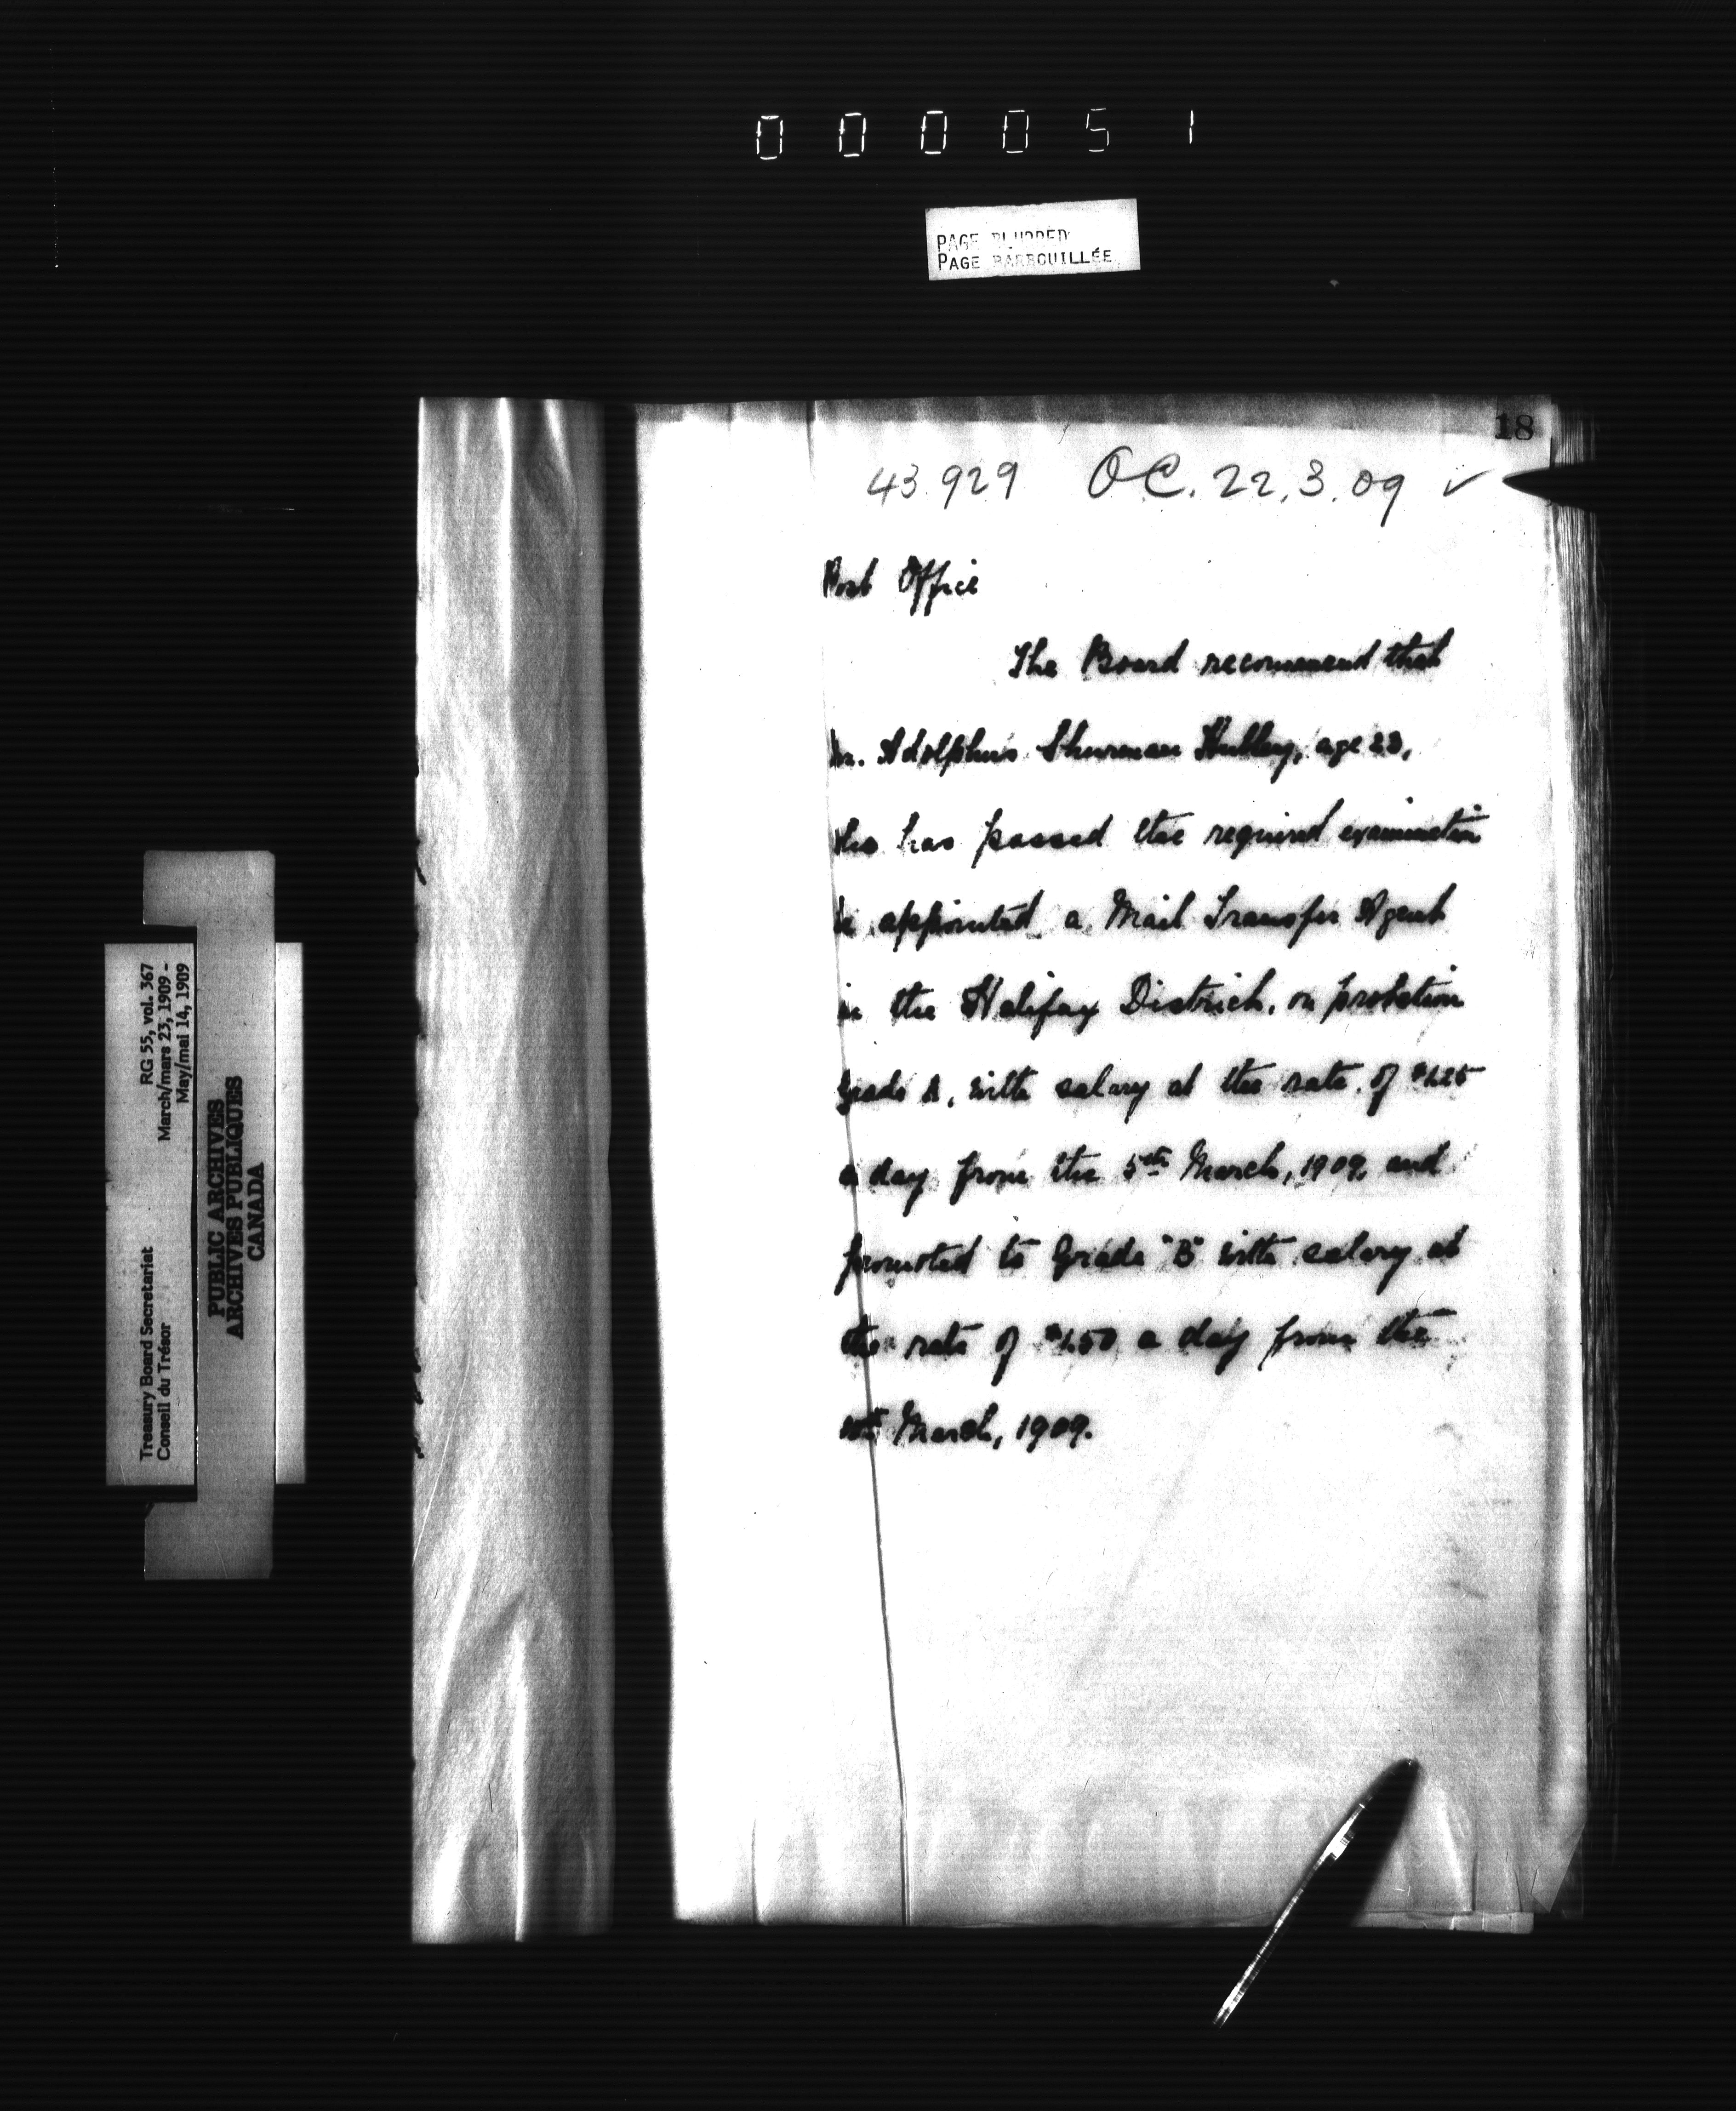 000051
PAGE BLURRED
PAGE BARBOUILLÉE
18
43.929 OC. 22.3.09 ✓
Post Office
The Board recommend that
Mr. Adolphus Shurman Hubley, age 23,
who has passed the required examination
be appointed a Mail Transfer Agent
in the Halifax District, on probation
Grade A, with salary at the rate of $1.25
a day from the 5th March, 1909, and
promoted to Grade "B" with salary at
the rate of $1.50 a day from the
March, 1909.
Treasury Board Secretariat RG 55, vol. 367
Conseil du Trésor March/mars 23, 1909 -
May/mai 14, 1909
PUBLIC ARCHIVES
ARCHIVES PUBLIQUES
CANADA